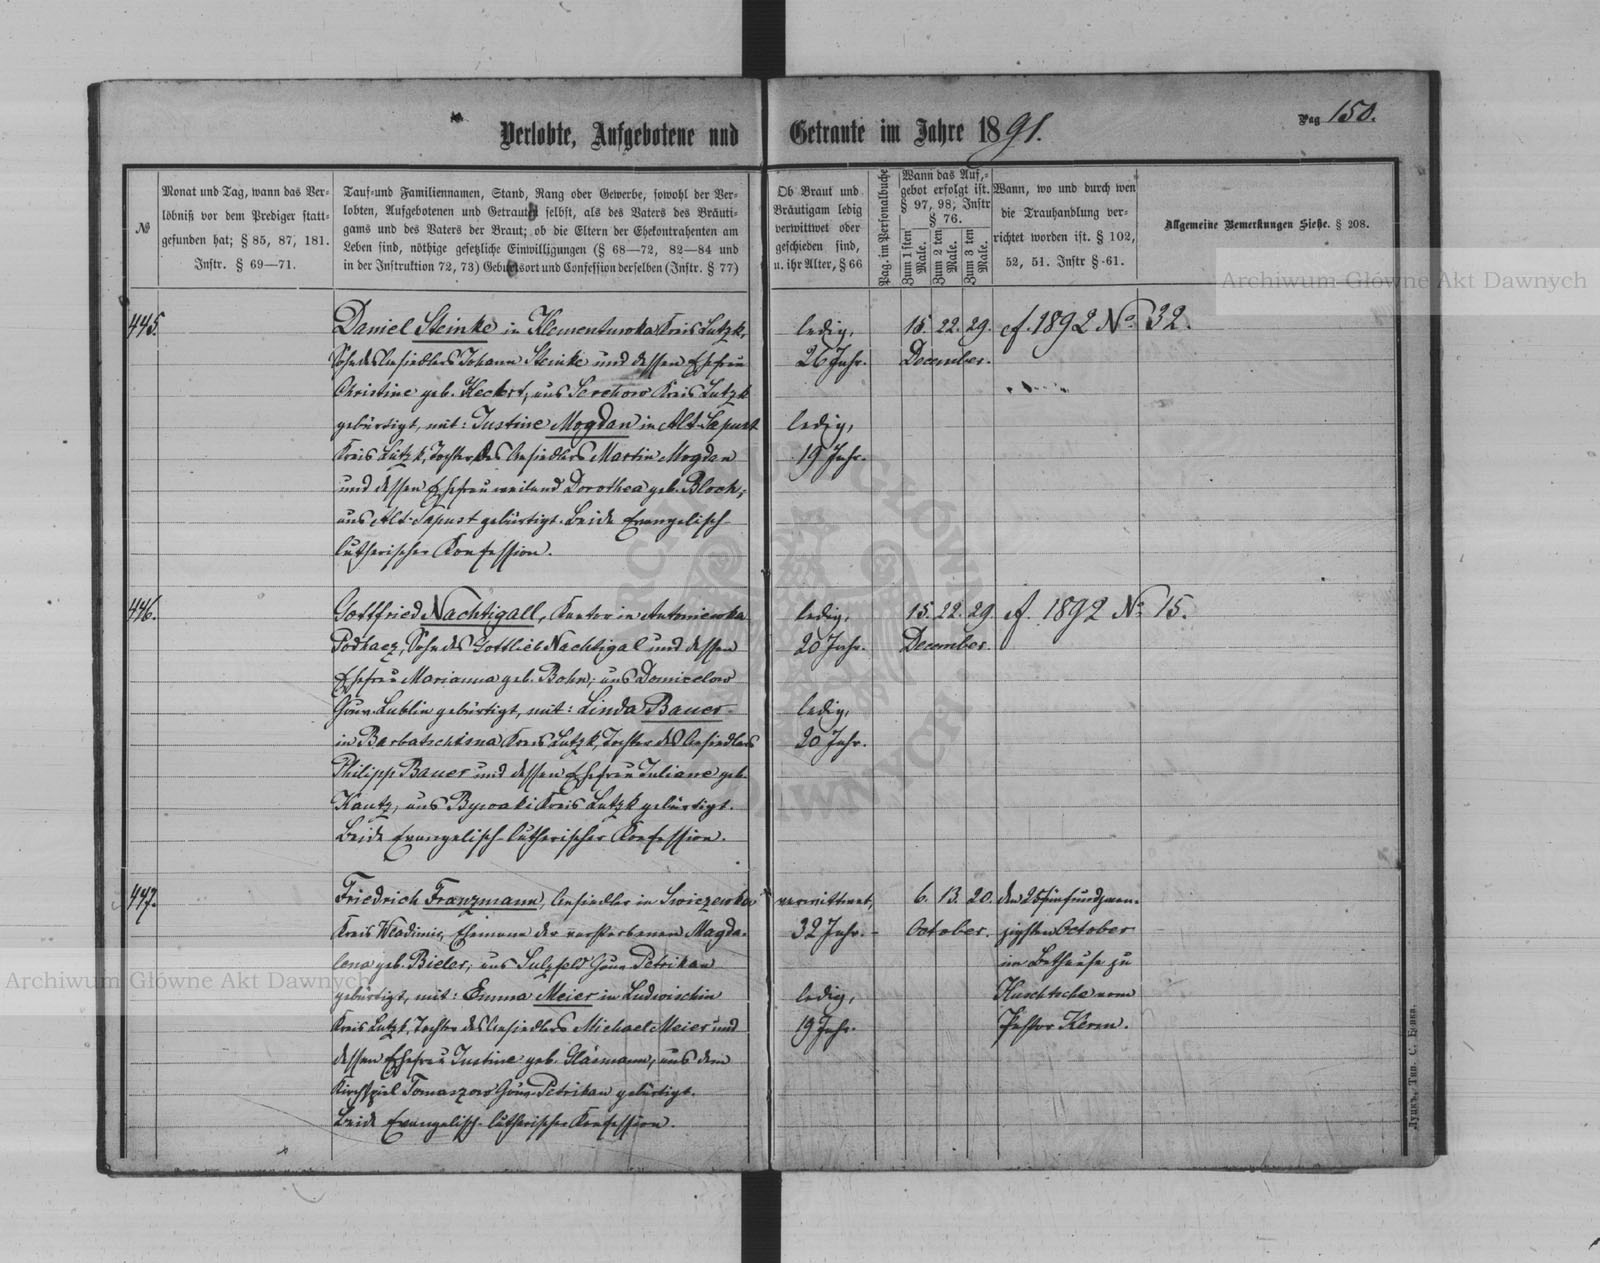 Verlobte, Aufgebotene und Getraute im Jahre 1891.
Pag 150.
№
Monat und Tag, wann das Ver-
löbniß vor dem Prediger statt-
gefunden hat; § 85, 87, 181.
Instr. § 69—71.
Tauf- und Familiennamen, Stand, Rang oder Gewerbe, sowohl der Ver-
lobten, Aufgebotenen und Getrauten selbst, als des Vaters des Bräuti-
gams und des Vaters der Braut; ob die Eltern der Ehekontrahenten am
Leben sind, nöthige gesetzliche Einwilligungen (§ 68—72, 82—84 und
in der Instruktion 72, 73) Geburtsort und Confession derselben (Instr. § 77)
Ob Braut und
Bräutigam ledig
verwittwet oder
geschieden sind,
u. ihr Alter, § 66
Pag. im Personalbuche
Wann das Auf-
gebot erfolgt ist.
§ 97, 98; Instr
§ 76.
Zum 1 sten Male.
Zum 2 ten Male.
Zum 3 ten Male.
Wann, wo und durch wen
die Trauhandlung ver-
richtet worden ist. § 102,
52, 51. Instr § 61.
Allgemeine Bemerkungen Siehe. § 208.
445.
Daniel Steinke in Klementuwka Kreis Lutzk,
Sohn des Ansiedlers Johann Steinke und dessen Ehefrau
Christine geb. Heckert, aus Serchow Kreis Lutzk
gebürtigt, mit: Justine Mogdan in Alt-Sapust
Kreis Lutzk, Tochter des Ansiedlers Martin Mogdan
und dessen Ehefrau weiland Dorothea geb. Bloch;
aus Alt-Sapust gebürtigt. Beide Evangelisch-
lutherischer Konfession.
ledig,
26 Jahr.
ledig,
19 Jahr.
15. 22. 29.
December.
cf. 1892 No. 32.
446.
Gottfried Nachtigall, Kantor in Antoniewka
Podhacz, Sohn des Gottlieb Nachtigal und dessen
Ehefrau Marianna geb. Bohn; aus Domicelow
Gouv. Lublin gebürtigt, mit: Linda Bauer
in Barbatschisna Kreis Lutzk, Tochter des Ansiedlers
Philipp Bauer und dessen Ehefrau Juliane geb.
Kautz, aus Bywaki Kreis Lutzk gebürtigt.
Beide Evangelisch-lutherischer Konfession.
ledig,
20 Jahr.
ledig,
20 Jahr.
15. 22. 29.
December.
cf. 1892 No. 15.
447.
Friedrich Franzmann, Ansiedler in Swiczewka,
Kreis Wladimir, Ehemann der verstorbenen Magda-
lena geb. Bieler, aus Sulzfeld Gouv. Petrikau
gebürtigt, mit: Emma Meier in Ludwischin
Kreis Lutzk, Tochter des Ansiedlers Michael Meier und
dessen Ehefrau Justine geb. Gläsmann, aus dem
Kirchspiel Tomaszow Gouv. Petrikau gebürtigt.
Beide Evangelisch-lutherischer Konfession.
verwittwet,
32 Jahr.
ledig,
19 Jahr.
6. 13. 20.
October.
den 25 fünfundzwan-
zigsten October
im Bethause zu
Kuschtsche vom
Pastor Kerm.
Луцкъ, Тип. С. Бунка.
Archiwum Główne Akt Dawnych
Archiwum Główne Akt Dawnych